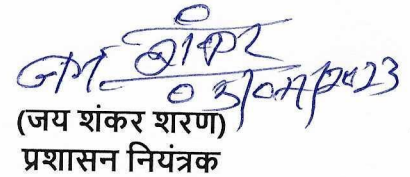 जय शंकर
03/07/2023
(जय शंकर शरण)
प्रशासन नियंत्रक